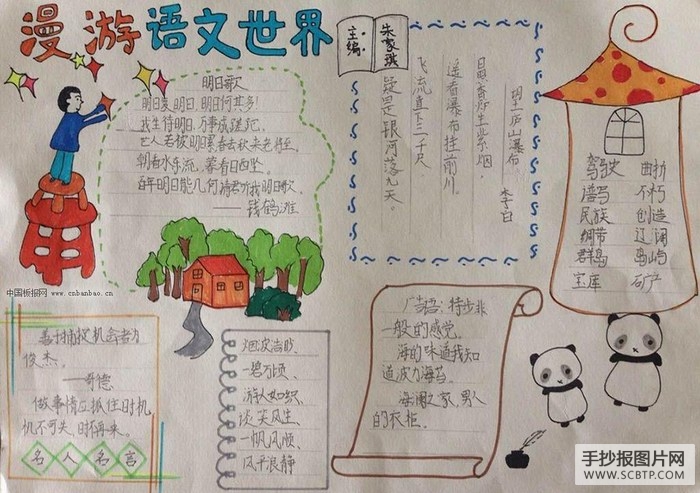 漫游语文世界
主编:
朱家琪
明日歌
明日复明日,明日何其多!
我生待明日,万事成蹉跎。
世人若被明日累,春去秋来老将至。
朝看水东流,暮看日西坠。
百年明日能几何,请君听我明日歌。
——钱鹤滩
庐山瀑布
李白
日照香炉生紫烟
遥看瀑布挂前川
飞流直下三千尺
疑是银河落九天。
驾驶 曲折
谱写 不朽
民族 创造
绸带 辽阔
群岛 岛屿
宝库 矿产
中国板报网 www.cnbanbao.cn
善于捕捉机会者为
俊杰。
——哥德
做事情应抓住时机
机不可失,时不再来。
名人名言
烟波浩眇、
一碧万顷、
游人如织、
谈笑风生、
一帆风顺、
风平浪静
广告语:特步非
一般的感觉。
海的味道我知
道波力海苔。
海澜之家,男人
的衣柜。
手抄报图片网
WWW.SCBTP.COM